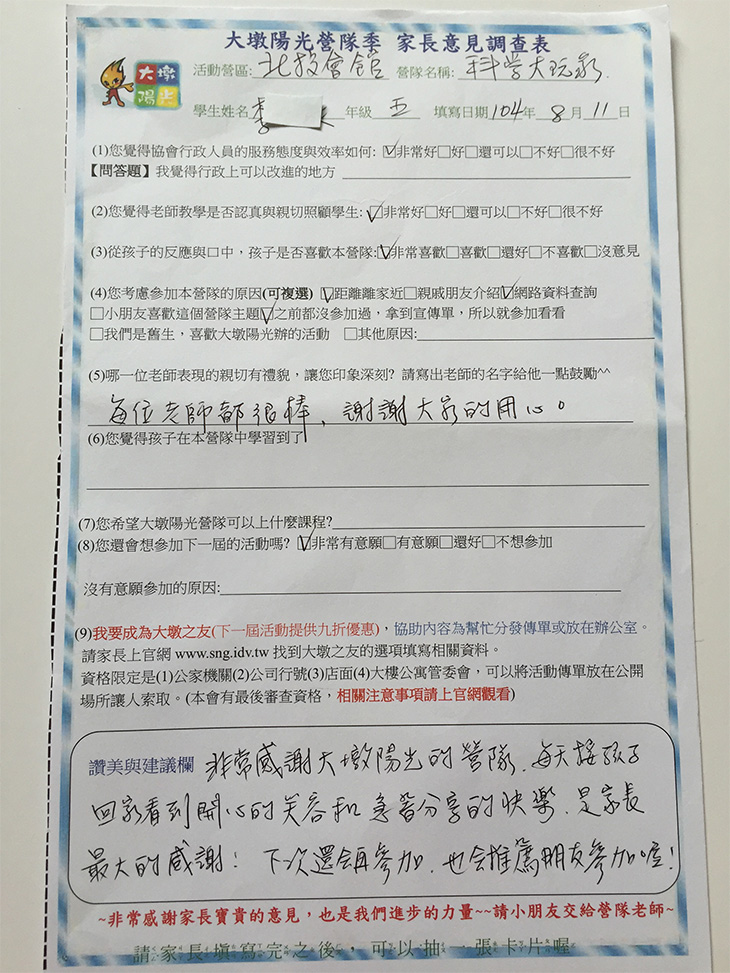 大墩陽光營隊季 家長意見調查表
大墩
陽光
活動營區: 北投會館 營隊名稱: 科學大玩家
學生姓名 李 年級 五 填寫日期104年 8月 11日
(1)您覺得協會行政人員的服務態度與效率如何: ☑非常好□好□還可以□不好□很不好
【問答題】我覺得行政上可以改進的地方
(2)您覺得老師教學是否認真與親切照顧學生: ☑非常好□好□還可以□不好□很不好
(3)從孩子的反應與口中,孩子是否喜歡本營隊: ☑非常喜歡□喜歡□還好□不喜歡□沒意見
(4)您考慮參加本營隊的原因(可複選) ☑距離離家近□親戚朋友介紹☑網路資料查詢
□小朋友喜歡這個營隊主題☑之前都沒參加過,拿到宣傳單,所以就參加看看
□我們是舊生,喜歡大墩陽光辦的活動 □其他原因:
(5)哪一位老師表現的親切有禮貌,讓您印象深刻? 請寫出老師的名字給他一點鼓勵^^
每位老師都很棒、謝謝大家的用心。
(6)您覺得孩子在本營隊中學習到了
(7)您希望大墩陽光營隊可以上什麼課程?
(8)您還會想參加下一屆的活動嗎? ☑非常有意願□有意願□還好□不想參加
沒有意願參加的原因:
(9)我要成為大墩之友(下一屆活動提供九折優惠),協助內容為幫忙分發傳單或放在辦公室。
請家長上官網 www.sng.idv.tw 找到大墩之友的選項填寫相關資料。
資格限定是(1)公家機關(2)公司行號(3)店面(4)大樓公寓管委會,可以將活動傳單放在公開
場所讓人索取。(本會有最後審查資格,相關注意事項請上官網觀看)
讚美與建議欄 非常感謝大墩陽光的營隊、每天接孩子
回家看到開心的笑容和急著分享的快樂、是家長
最大的感謝! 下次還会再參加、也会推薦朋友參加喔!
~非常感謝家長寶貴的意見,也是我們進步的力量~~請小朋友交給營隊老師~
請家長填寫完之後,可以抽一張卡片喔